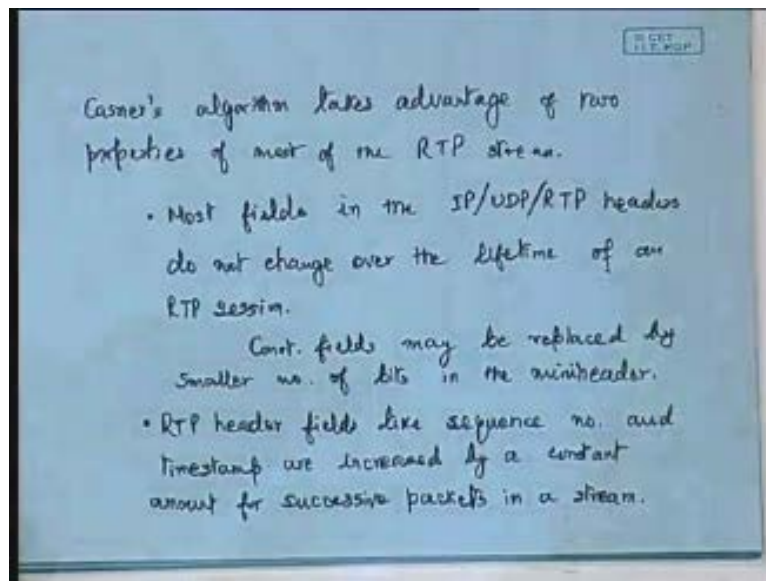 © CET
I.I.T. KGP
Casner's algorithm takes advantage of two
properties of most of the RTP stream.
• Most fields in the IP/UDP/RTP headers
do not change over the lifetime of an
RTP session.
Const. fields may be replaced by
smaller no. of bits in the miniheader.
• RTP header fields like sequence no. and
timestamp are increased by a constant
amount for successive packets in a stream.